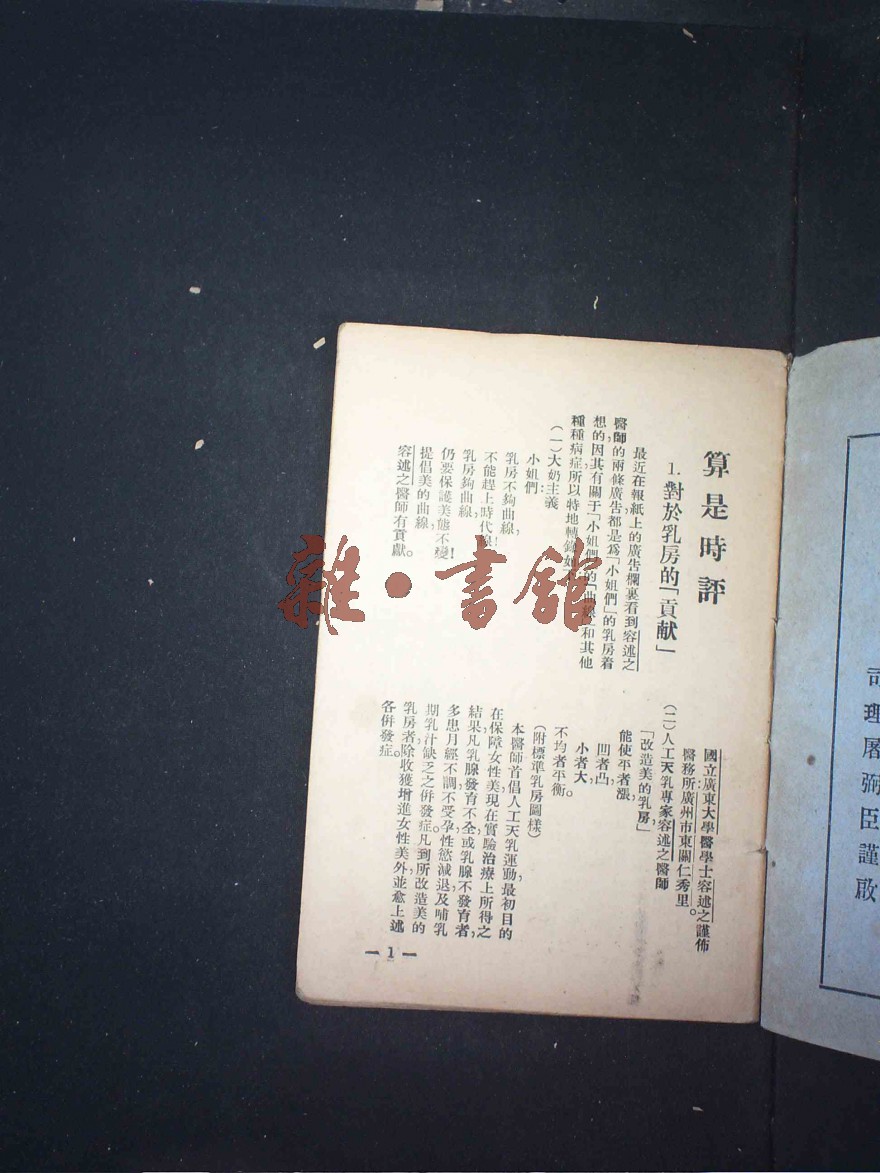 算是時評
1. 對於乳房的「貢献」
最近在報紙上的廣告欄裏看到容述之
醫師的兩條廣告都是爲「小姐們」的乳房着
想的因其有關于「小姐們」的「曲線」和其他
種種病症所以特地轉錄如
(一)大奶主義
小姐們：
乳房不夠曲線，
不能趕上時代線！
乳房夠曲線，
仍要保護美態不變！
提倡美的曲線，
容述之醫師有貢獻。
國立廣東大學醫學士容述之謹佈
醫務所廣州市東關仁秀里。
(二)人工天乳專家容述之醫師
「改造美的乳房」
能使平者漲，
凹者凸，
小者大，
不均者平衡。
(附標準乳房圖樣)
本醫師首倡人工天乳運動，最初目的
在保障女性美，現在實驗治療上所得之
結果，凡乳腺發育不全，或乳腺不發育者，
多患月經不調，不受孕，性慾減退及哺乳
期乳汁缺乏之併發症。凡到所改造美的
乳房者，除收獲增進女性美外，並愈上述
各併發症。
— 1 —
司理屠弼臣謹啟
雜·書館